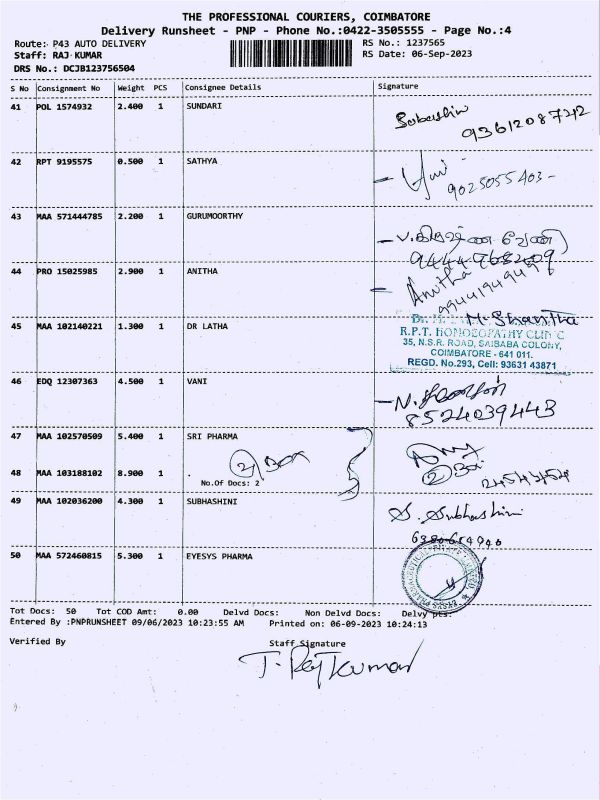 THE PROFESSIONAL COURIERS, COIMBATORE
Delivery Runsheet - PNP - Phone No.:0422-3505555 - Page No.:4
Route: P43 AUTO DELIVERY RS No.: 1237565
Staff: RAJ KUMAR RS Date: 06-Sep-2023
DRS No.: DCJB123756504
S No Consignment No Weight PCS Consignee Details Signature
41 POL 1574932 2.400 1 SUNDARI
93612087212
42 RPT 9195575 0.500 1 SATHYA
9025055403-
43 MAA 571444785 2.200 1 GURUMOORTHY
44 PRO 15025985 2.900 1 ANITHA Anitha
45 MAA 102140221 1.300 1 DR LATHA M. Shantha
R.P.T. HOMOEOPATHY CLINIC
35, N.S.R. ROAD, SAIBABA COLONY,
COIMBATORE - 641 011.
REGD. No.293, Cell: 93631 43871
46 EDQ 12307363 4.500 1 VANI
8524039443
47 MAA 102570509 5.400 1 SRI PHARMA
2 Box
48 MAA 103188102 8.900 1 No.Of Docs: 2
49 MAA 102036200 4.300 1 SUBHASHINI S. Subhashini
50 MAA 572460815 5.300 1 EYESYS PHARMA
Tot Docs: 50 Tot COD Amt: 0.00 Delvd Docs: Non Delvd Docs: Delvy pts:
Entered By :PNPRUNSHEET 09/06/2023 10:23:55 AM Printed on: 06-09-2023 10:24:13
Verified By Staff Signature
T. Rajkumar